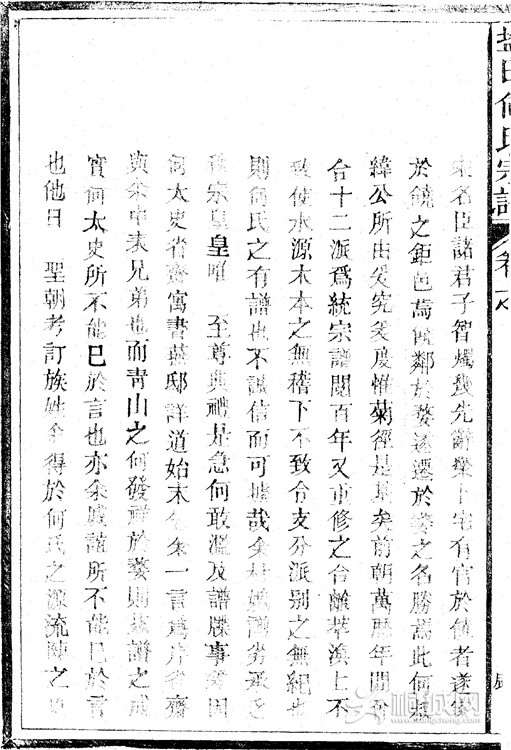 鹽田何氏宗譜
卷之
宋名臣諸君子智燭幾先辭榮卜宅有官於饒者遂
於饒之鉅邑焉 鄰於婺遂遷於婺之名勝焉此何
緯公所由爰究爰度惟菊徑是基矣前朝萬曆年間
合十二派爲統宗譜閱百年又重修之合離萃渙上不
致使水源木本之無稽下不致合支分派别之無紀
則何氏之有譜也不誠信而可據哉余
秩宗皇皇唯 至尊典禮是急何敢濫及譜牒事 因
何太史省齋寓書燕邸詳道始末 余一言爲序省齋
與余中表兄弟也而青山之何發祥於婺則茲譜之成
實何太史所不能已於言也亦余 所不能已於言
也他日 聖朝考訂族姓 得於何氏之源流陳之
柏城网